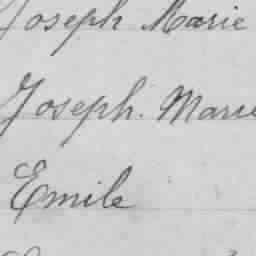 Joseph Marie
Joseph. Marie
Emile